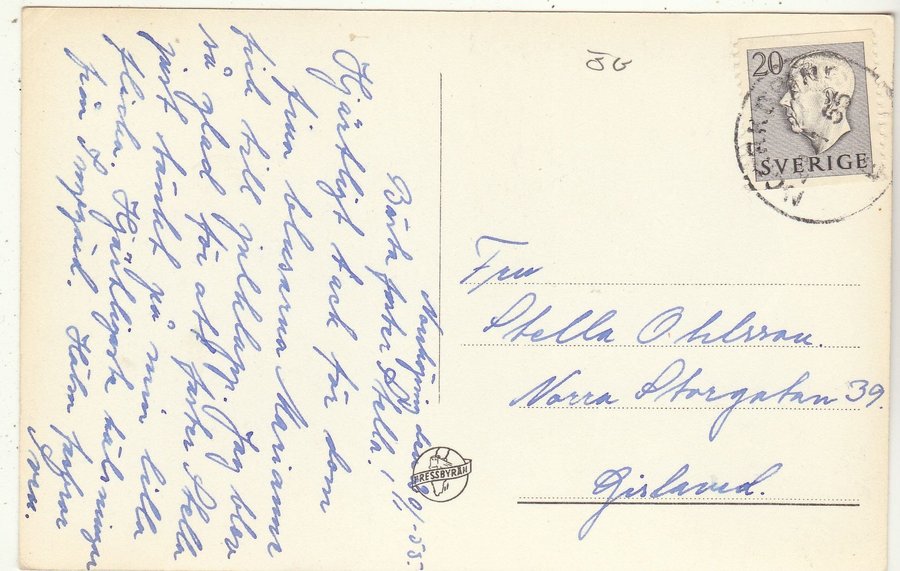 Norrköping den 10/1-55.
Bästa faster Stella!
Hjärtligt tack för dom
fina blusarna Mariann
fick till julklapp. Jag blev
så glad för att faster Stella
just tänkt på min lilla
flicka. Hjärtligaste hälsningar
från Ingegerd. Hälsn farbror
56
20
SVERIGE
55
PRESSBYRÅN
Fru
Stella Ohlsson.
Norra Storgatan 39.
Gislaved.